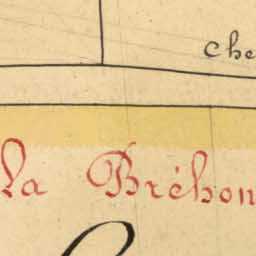 che
La Bréhon